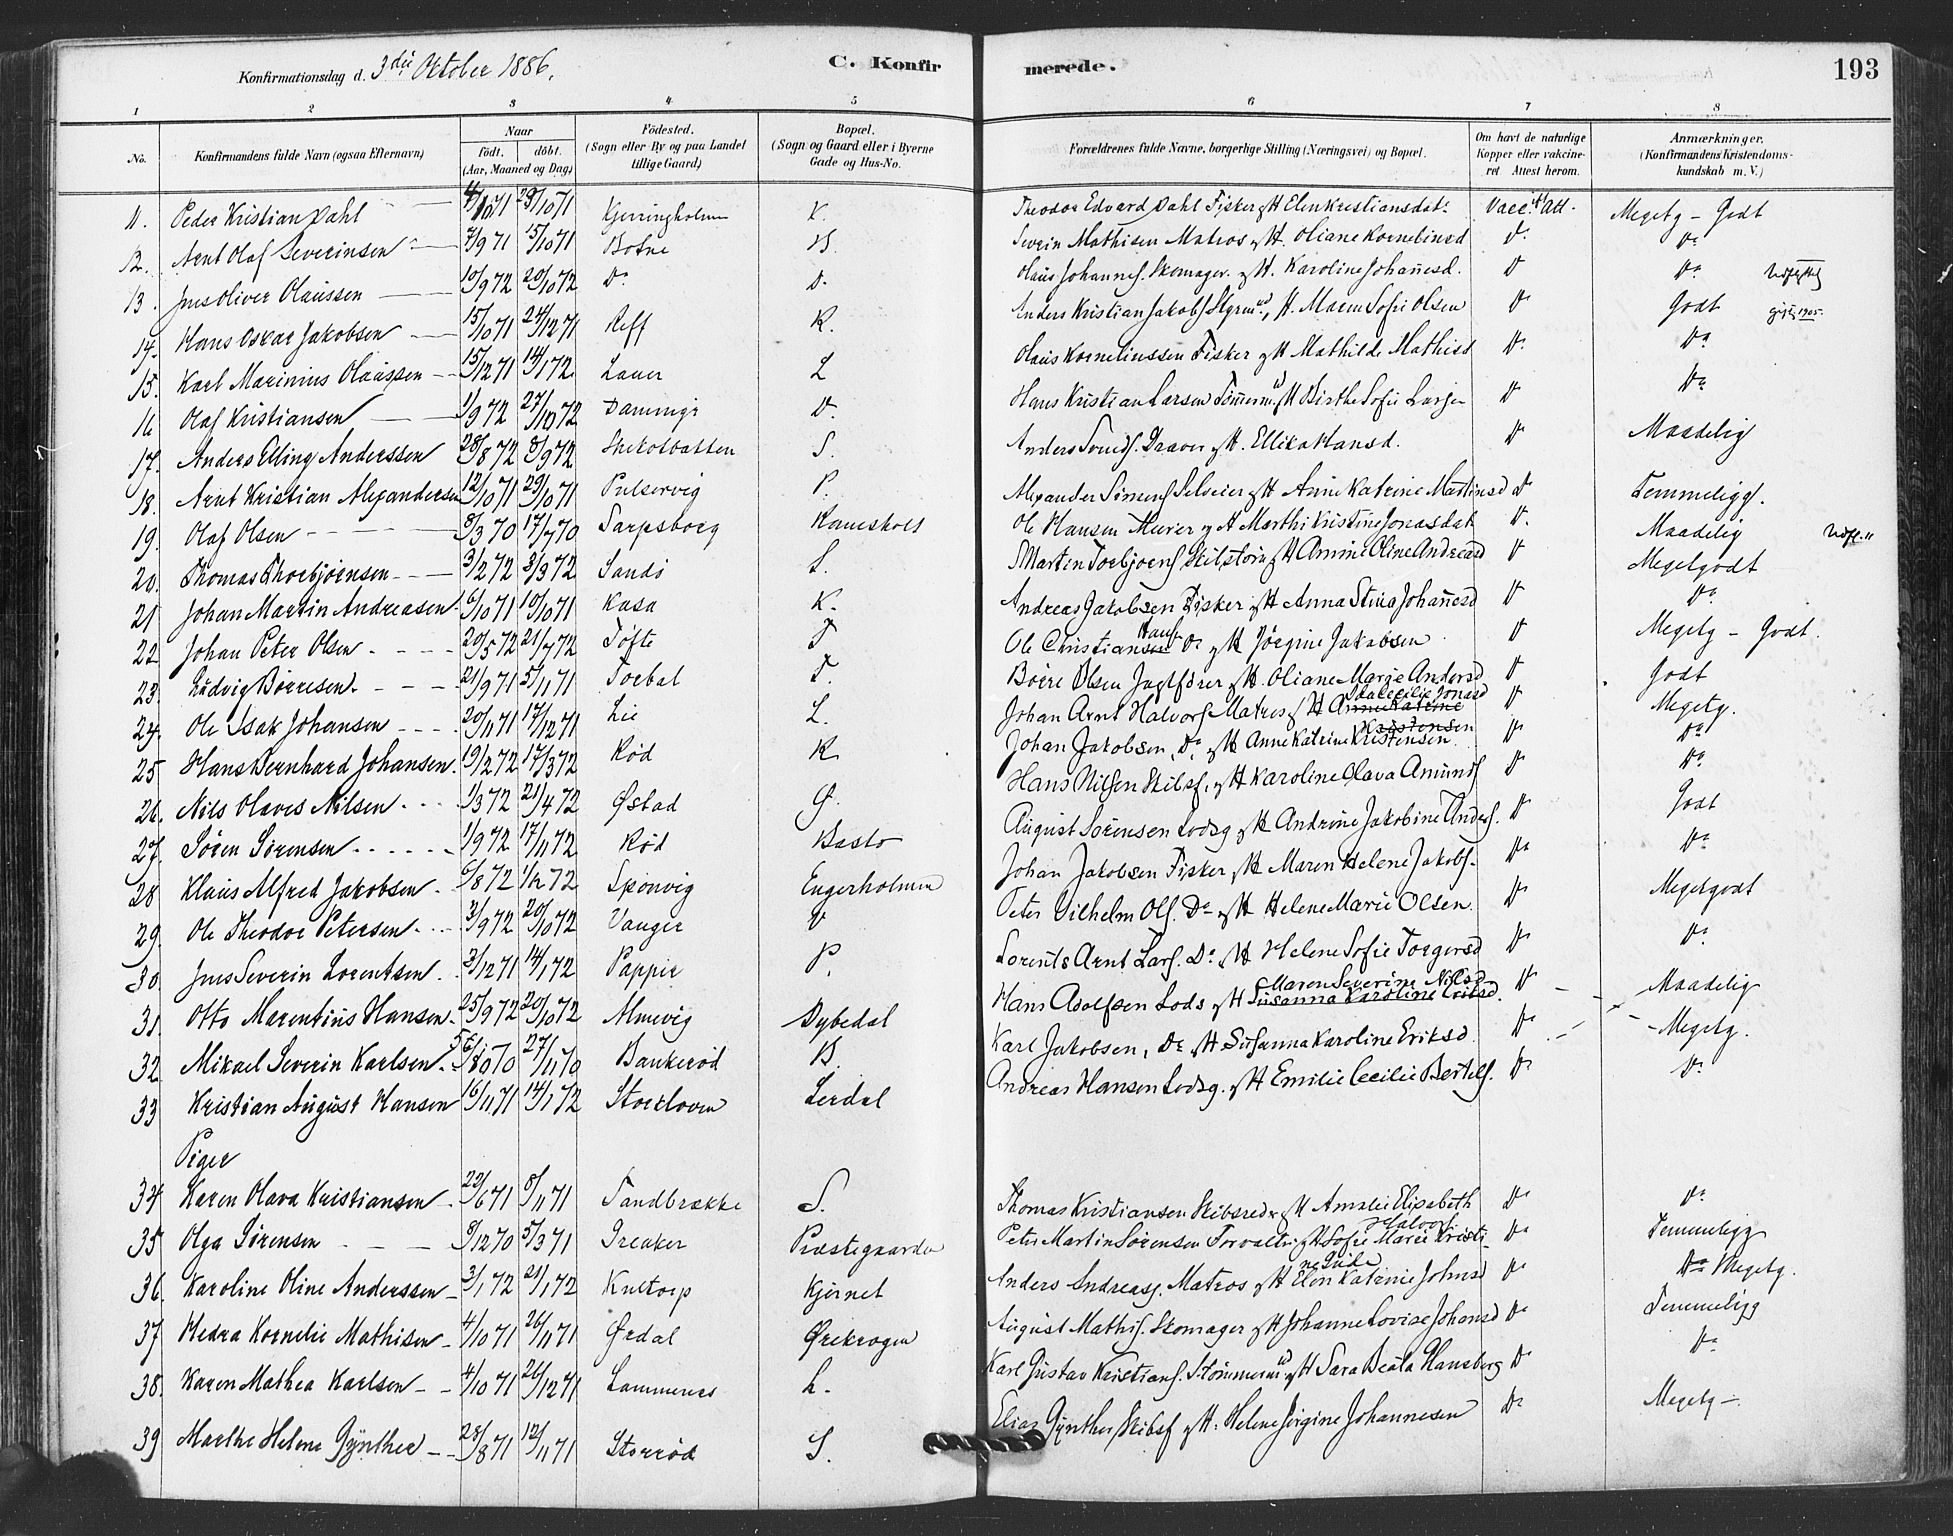 Konfirmationsdag d. 3die October 1886.
C. Konfirmerede.
193
1 2 3 4 5 6 7 8
No.
Konfirmandens fulde Navn (ogsaa Efternavn)
Naar
født. døbt.
(Aar, Maaned og Dag)
Fødested.
(Sogn eller By og paa Landet
tillige Gaard)
Bopæl.
(Sogn og Gaard eller i Byerne
Gade og Hus-No.
Forældrenes fulde Navne, borgerlige Stilling (Næringsvei) og Bopæl.
Om havt de naturlige
Kopper eller vakcine-
ret Attest herom.
Anmærkninger.
(Konfirmandens Kristendoms-
kundskab m. V.)
11. Peder Kristian Dahl 4/10 71 29/10 71 Kjerringholmen K. Theodor Edvard Dahl Fisker H Elen Kristiansdat. Vacc. Att. Megetg - Godt
12. Arnt Olaf Severinsen 7/9 71 15/10 71 Botne B. Severin Mathisen Matros H. Oliane Kornelinsd Do Do
13. Jens Oliver Olaussen 10/9 72 20/10 72 Do D. Olaus Johannes. Skomager. H. Karoline Johañesd. D Do
14. Hans Oskar Jakobsen 15/10 71 24/12 71 Reff K. Anders Kristian Jakobs. H. Maren Sofie Olsen D Godt
15. Karl Marinius Olaussen 15/12 71 14/1 72 Lauer L Olaus Korneliussen Fisker H Mathilde Mathisd D. Do
16 Olaf Kristiansen 1/9 72 27/10 72 Dammyr D. Hans Kristian Larsen H Birthe Sofie Larsen D Do
17. Anders Elling Anderssen 28/8 72 8/9 72 Skikolbatten S. Anders H. Ellika Hansd. D Maadelig
18. Arnt Kristian Alexandersen 12/10 71 29/10 71 Pulservig P. Alexander Simens. Selveier H Anne Katrine Martinsd D Temmeligg.
19. Olaf Olsen 8/3 70 17/7 70 Sarpsborg Ole Hansen Murer H Marthe Kristine Jonasdat D. Maadelig
20. Thomas Thorbjørnsen 3/2 72 3/3 72 Sandø S. Martin Torbjørns. H Amine Oline Andreasd D Megetgodt
21 Johan Martin Andreasen 6/10 71 10/10 71 Kasa K. Andreas Jakobsen Fisker H Anna Stina Johañesd D Do
22 Johan Peter Olsen 20/5 72 21/7 72 Tofte T Ole Christian Hans. Do H Jørgine Jakobsen D Megetg - Godt.
23. Ludvig Børresen 21/9 71 5/11 71 Torbal T. Børre Olsen Jagtfører H. Oliane Marie Andersd D Godt
24. Ole Isak Johansen 20/11 71 17/12 71 Lie L. Johan Arnt Halvors. Matros H Ida Cecilie Jonasd D Megetg.
25 Hans Bernhard Johansen 19/2 72 17/3 72 Rød R Johan Jakobsen, Do H Anne Katrine Kristensen D Do
26. Nils Olaves Nilsen 1/3 72 21/4 72 Østad Ø. Hans Nilsen Skibsf. H Karoline Olava Amunds D Do
27. Søren Sørensen 1/9 72 17/11 72 Rød Basto August Sørensen Lodsg H Andrine Jakobine Anders. D Godt
28 Klaus Alfred Jakobsen 6/8 72 72 Skonvig Engerholmen Johan Jakobsen Fisker H Maren Helene Jakobs. Do Do
29. Ole Theodor Petersen 3/9 72 20/10 72 Vauger V Peter Vilhelm Ols. Do H Helene Marie Olsen. D Megetgodt
30. Jens Severin Lorentsen 3/12 71 14/1 72 Papper P. Lorents Arnt Lars. Do H Helene Sofie Torgersd D Do
31. Otto Marentius Hansen 25/9 72 20/10 72 Almevig Dybedal Hans Adolfsen Lods H Maren Severine Nilsd D Maadelig
32 Mikael Severin Karlsen 70 27/11 70 Bankerød B. Karl Jakobsen, Do H Susanna Karoline Eriksd D Megetg.
33 Kristian August Hansen 16/11 71 14/1 72 Lerdal Andreas Hansen Lodsg. H Emilie Cecilie Bertels. D Do
Piger
34 Karen Olava Kristiansen 22/6 71 8/11 71 Sandbrække S. Thomas Kristiansen Skibsreder H Amalie Elisabeth Halvors Do Do
35 Olga Sørensen 8/12 70 5/3 71 Greaker Præstegaarden Peter Martin Sørensen Forvalter H Sofie Marie Kristine Do Temmeligg
36. Karoline Oline Anderssen 3/1 72 21/1 72 Kultorp Kjernet Anders Andreass. Matros H Elen Katrine Johnsd Do Do Megetg.
37 Hedra Kornelie Mathisen 4/10 71 26/11 71 Ørdal Ørekrogen August Mathis. Skomager H Johanne Lovise Johansd Do Temmeligg
38. Karen Mathea Karlsen 4/10 71 26/12 71 Lammeres L. Karl Gustav Kristians. H Sara Beata Hansberg Do Do
39 Marthe Helene Gynther 28/8 71 12/11 71 Storrød S. Elias Gynther Skibsf H. Helene Jørgine Johannesen Do Megetg -